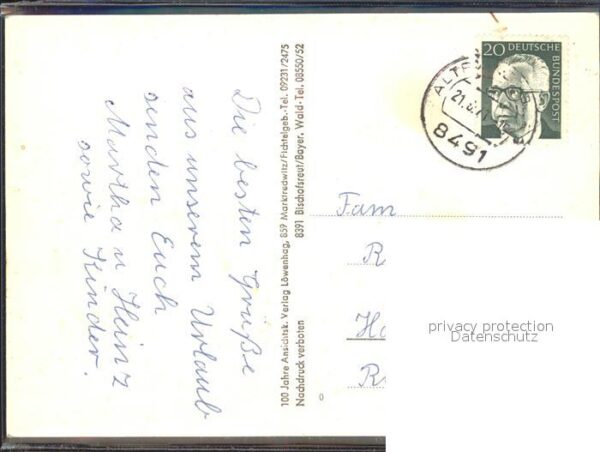 Die besten Grüße
aus unserem Urlaub
senden Euch
Martha u Heinz
sowie Kinder.
100 Jahre Ansichtsk. Verlag Löwenhag, 859 Marktredwitz/Fichtelgeb.-Tel. 09231/2475
8391 Bischofsreut/Bayer. Wald-Tel. 08550/52
Nachdruck verboten
20 DEUTSCHE
BUNDESPOST
8491
Fam
R
Ha
R
privacy protection
Datenschutz